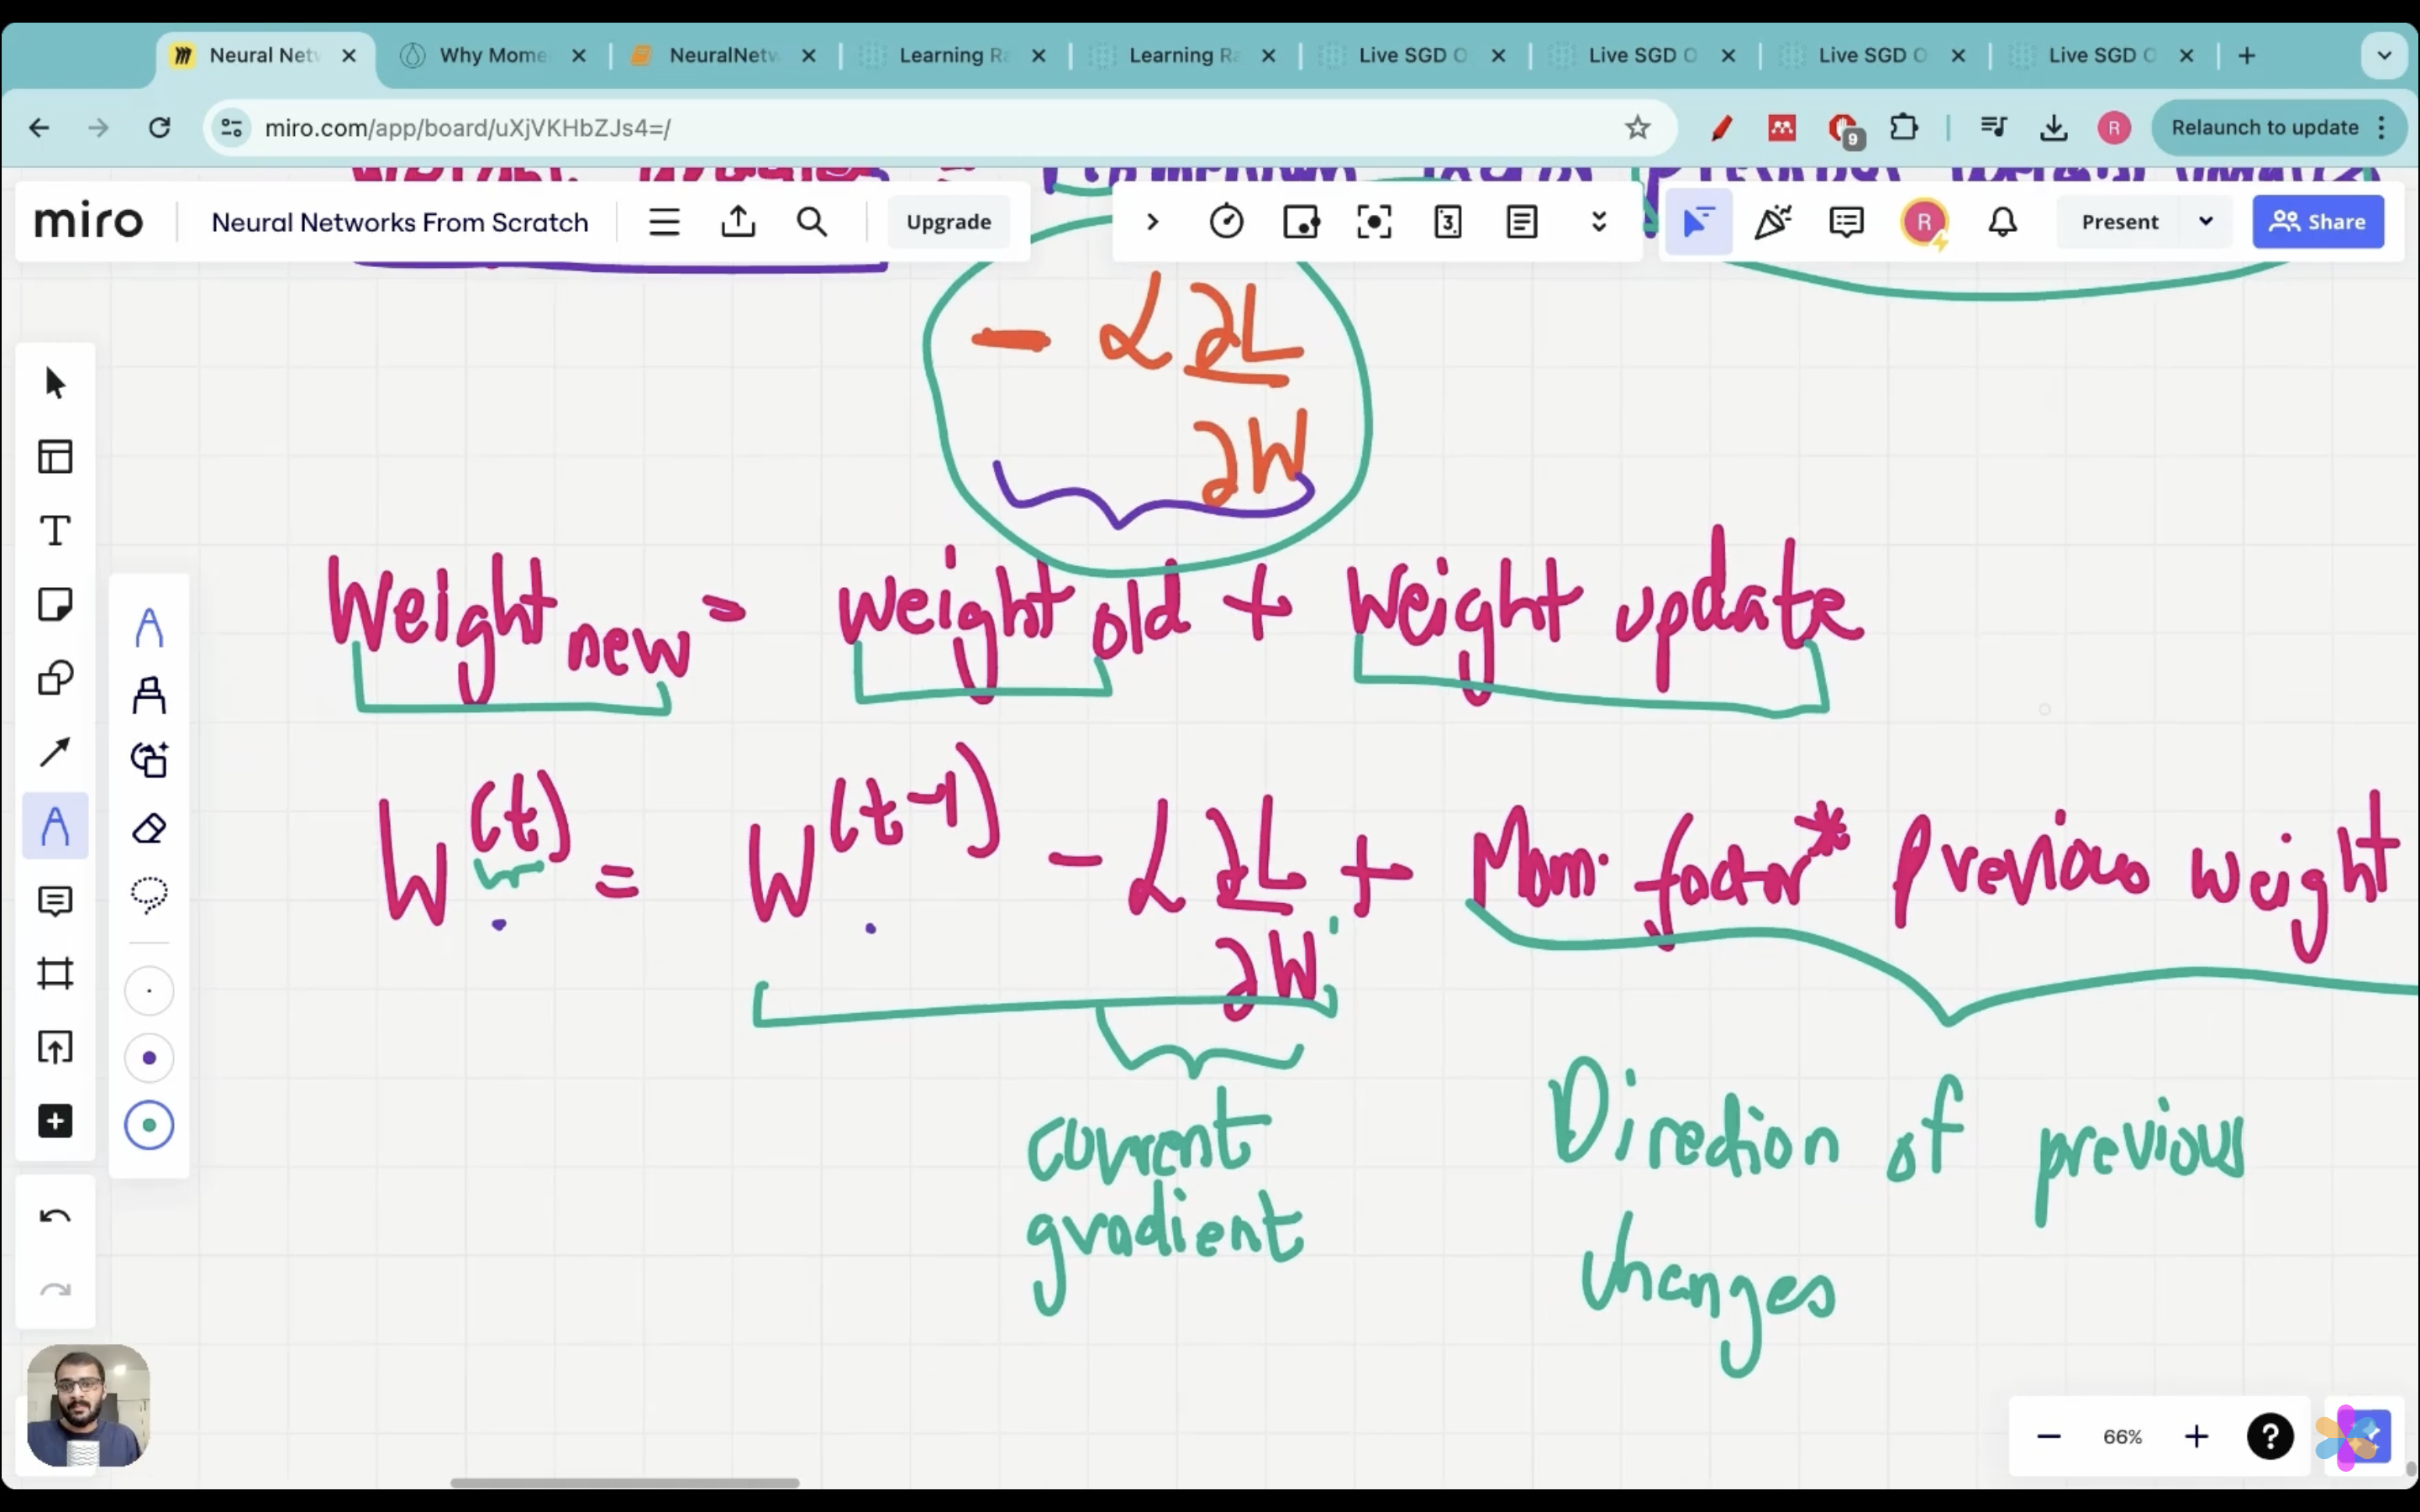 Neural Net
Why Mome
NeuralNetw
Learning Ra
Learning Ra
Live SGD O
Live SGD O
Live SGD O
Live SGD O
miro.com/app/board/uXjVKHbZJs4=/
9
R
Relaunch to update
miro
Neural Networks From Scratch
Upgrade
3
R
Present
Share
- α ∂L
∂W
Weight new = Weight old + Weight update
W(t) = W(t-1) - α ∂L + Mom. factor* Previous Weight
∂W
current
gradient
Direction of previous
changes
66%